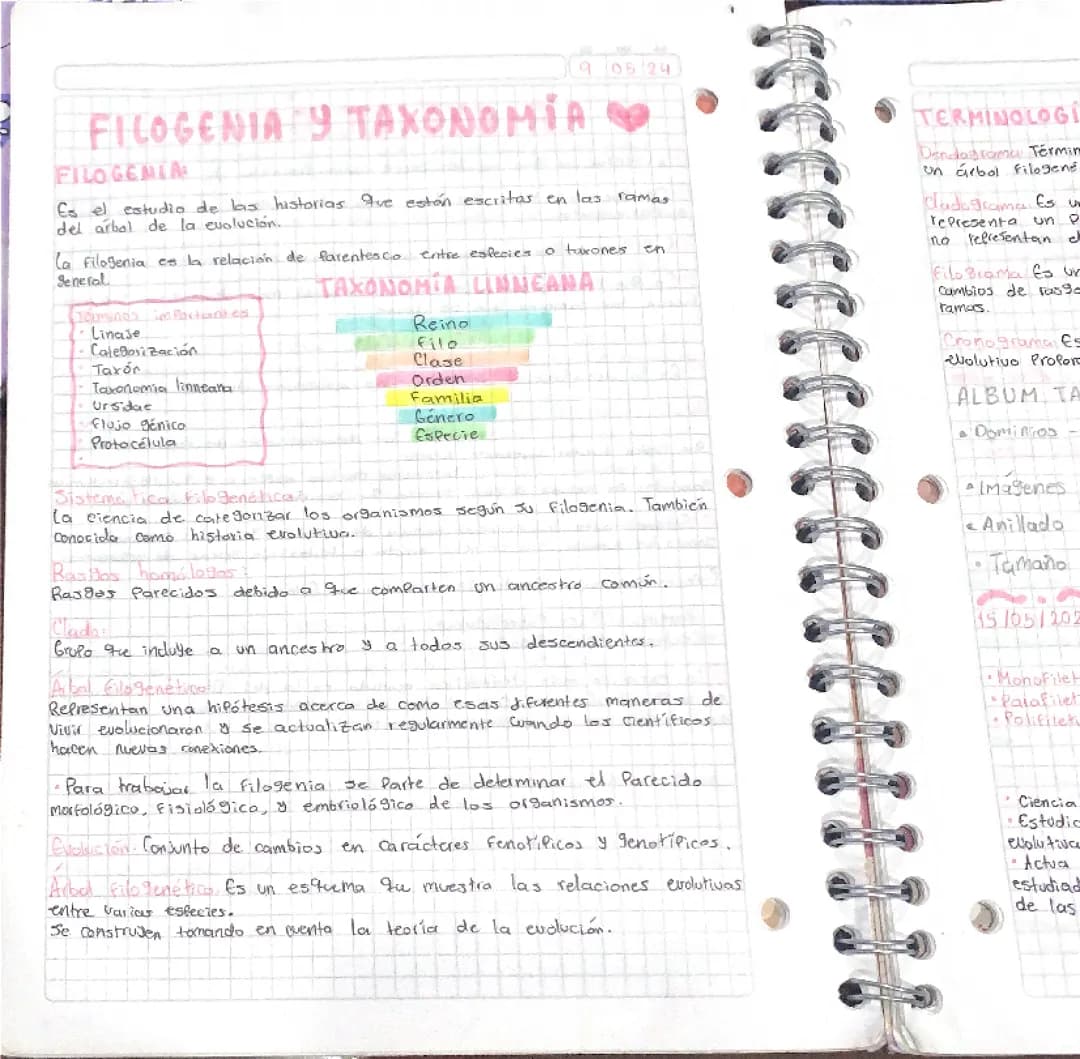 9 05 24
FILOGENIA Y TAXONOMÍA
FILOGENIA:
Es el estudio de las historias que están escritas en las ramas
del árbol de la evolución.
La filogenia es la relación de parentesco entre especies o taxones en
general.
TAXONOMÍA LINNEANA
Términos importantes
· Linaje
· Categorización
· Taxón
· Taxonomia linneana
· Ursidae
· Flujo génico
· Protocélula
Reino
Filo
Clase
Orden
Familia
Género
Especie
Sistematica filogenética:
La ciencia de categorizar los organismos según su filogenia. También
conocida como historia evolutiva.
Rasgos homólogos:
Rasgos parecidos debido a que comparten un ancestro común.
Clado:
Grupo que incluye a un ancestro y a todos sus descendientes.
Árbol filogenético:
Representan una hipótesis acerca de como esas diferentes maneras de
vivir evolucionaron y se actualizan regularmente cuando los científicos
hacen nuevas conexiones.
· Para trabajar la filogenia se parte de determinar el parecido
morfológico, fisiológico, y embriológico de los organismos.
Evolución: Conjunto de cambios en carácteres fenotípicos y genotípicos.
Árbol filogenético: Es un esquema qu muestra las relaciones evolutivas
entre varias especies.
Se construyen tomando en cuenta la teoría de la evolución.
TERMINOLOGÍ
Dendograma: Términ
un árbol filogené
Cladograma: Es u
representa un p
no representan e
Filograma: Es un
cambios de rasgo
ramas.
Cronograma: Es
evolutivo Propor
ALBUM TA
· Dominios -
· Imágenes
· Anillado
· Tamaño
15/05/202
· Monofilet
· Parafilet
· Polifileti
· Ciencia
· Estudio
evolutiva
· Actua
estudiad
de las